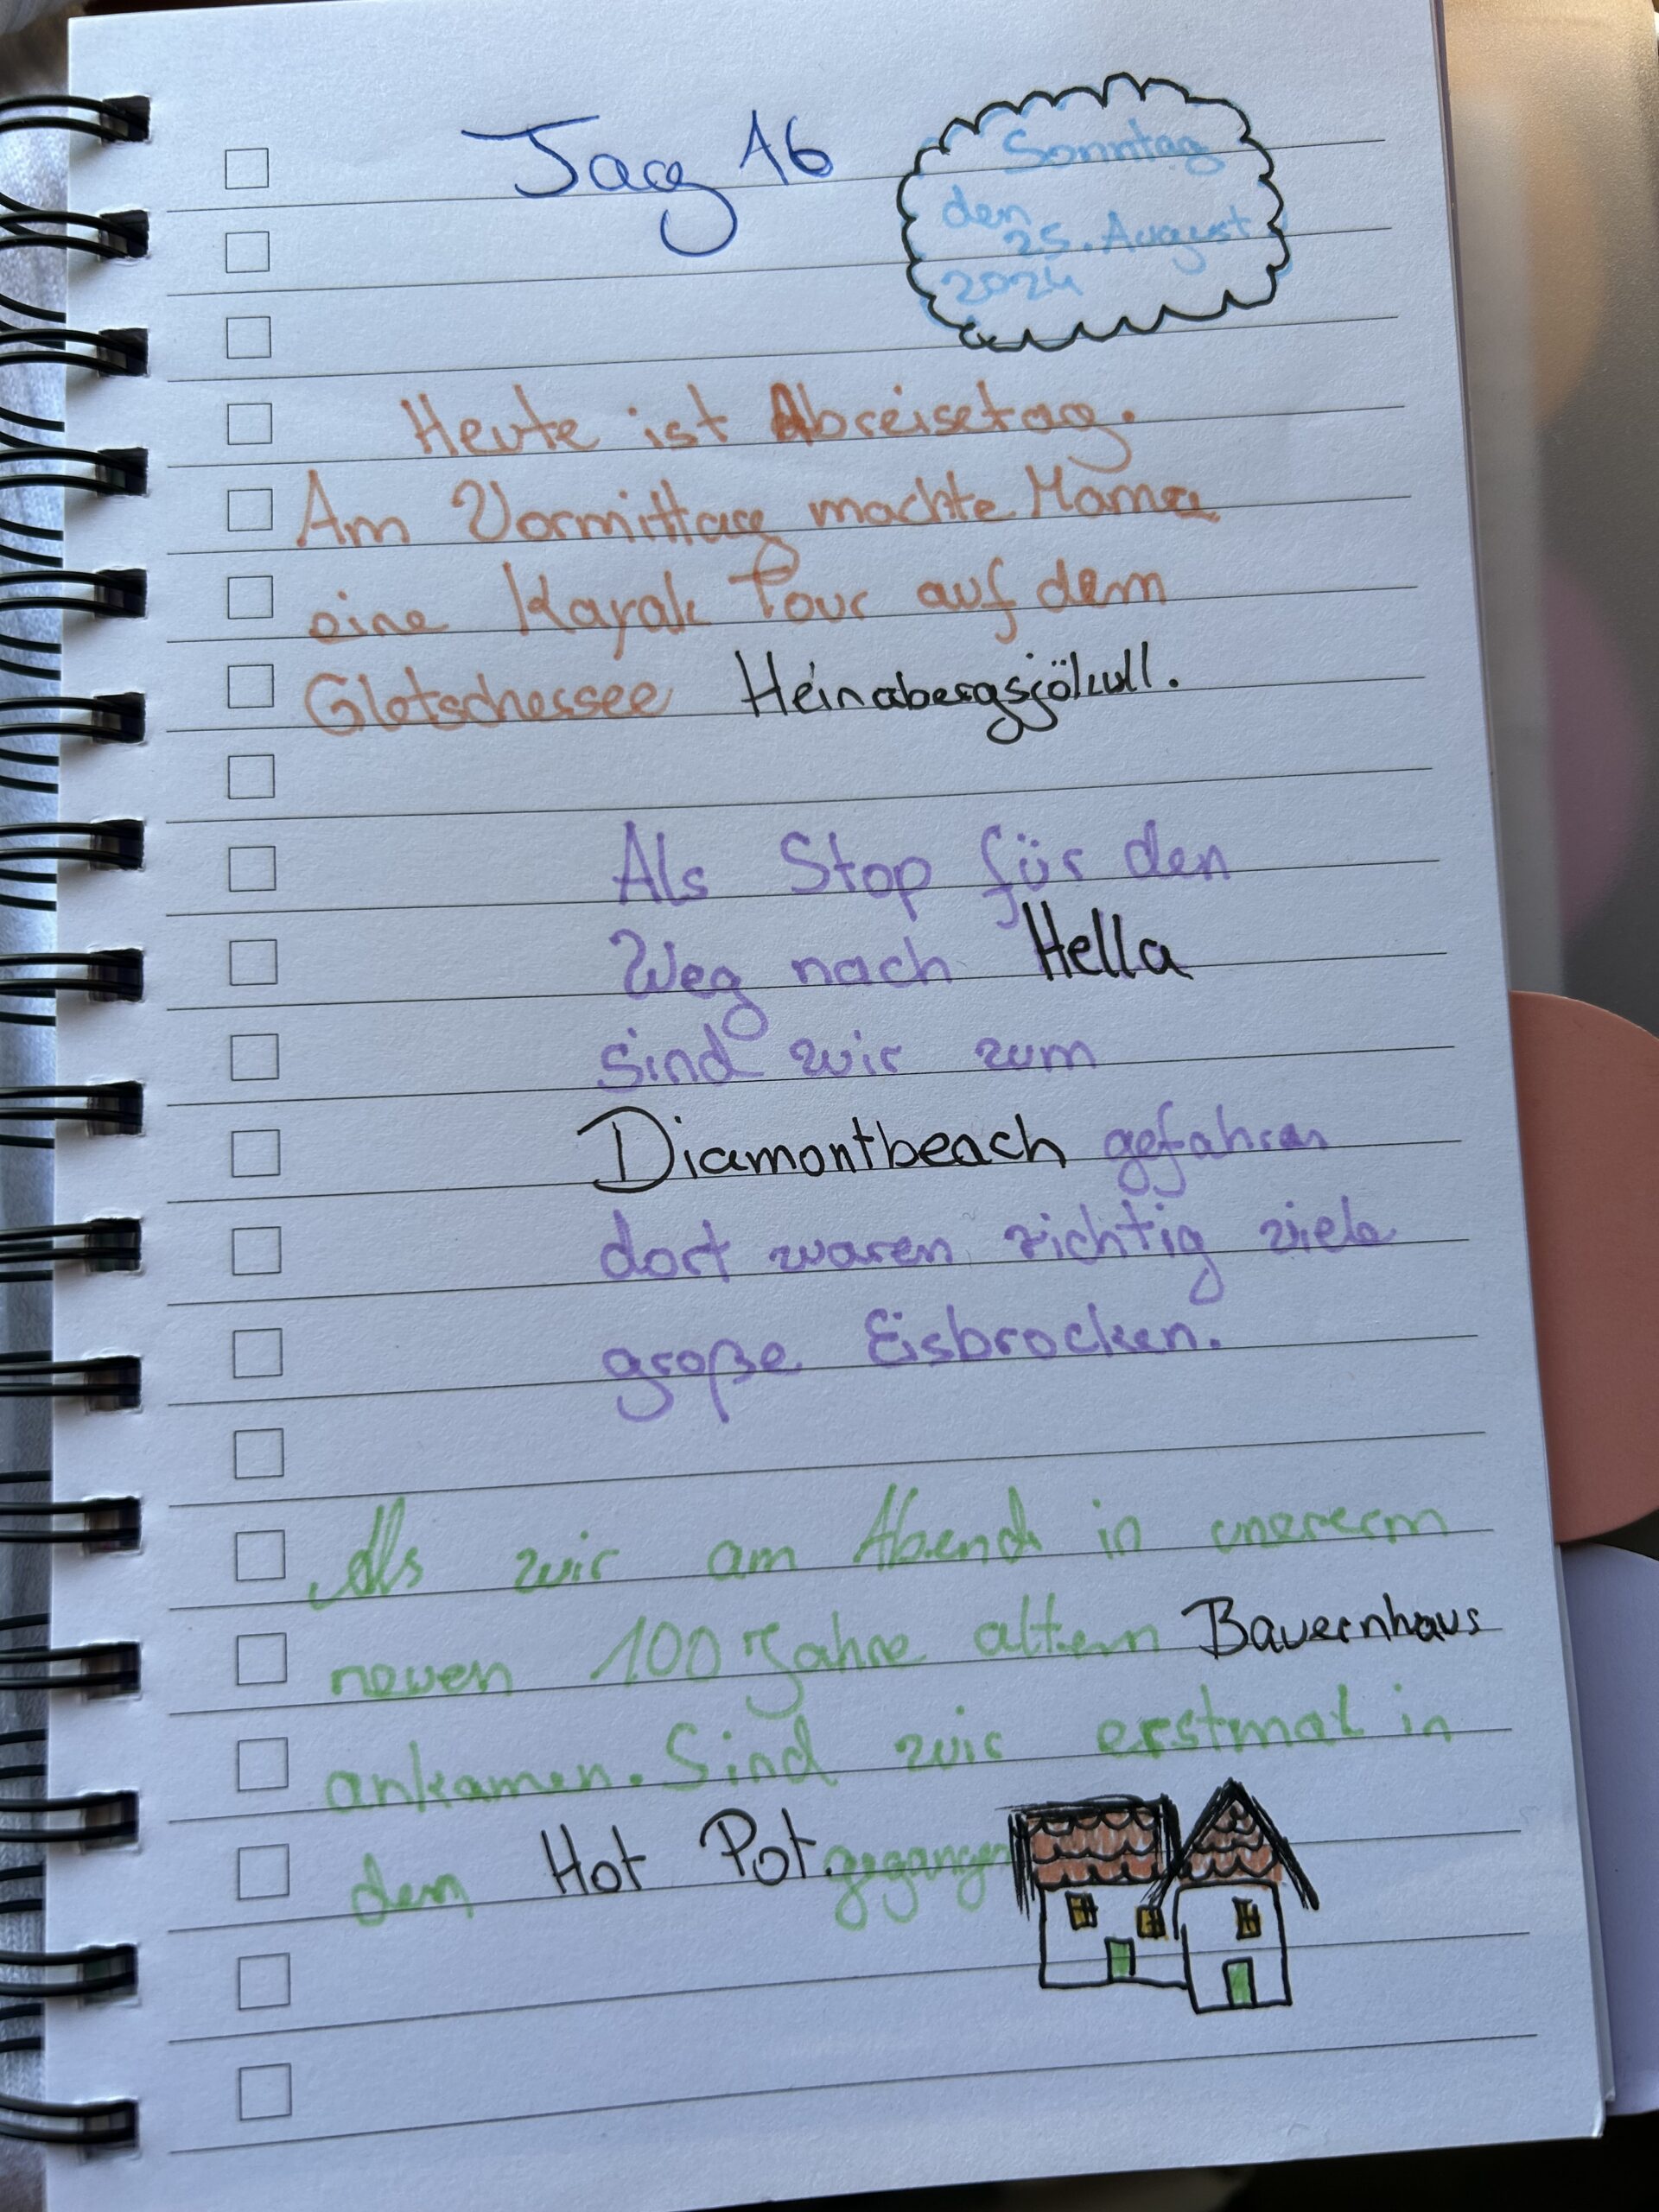 Tag 16
Sonntag
den
25. August
2024
Heute ist Abreisetag.
Am Vormittag machte Mama
eine Kayak Tour auf dem
Gletschersee Heinabergsjökull.
Als Stop für den
Weg nach Hella
sind wir zum
Diamontbeach gefahren
dort waren richtig viele
große Eisbrocken.
Als wir am Abend in unererm
neuen 100 Jahre altem Bauernhaus
ankamen. Sind wir erstmal in
den Hot Pot. gegangen